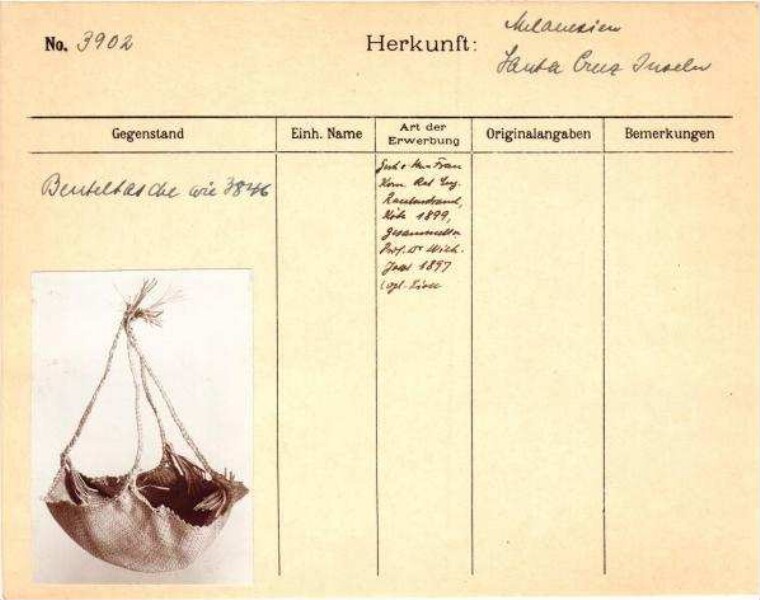 No. 3902
Herkunft: Melanesien
Santa Cruz Inseln
Gegenstand
Einh. Name
Art der Erwerbung
Originalangaben
Bemerkungen
Beuteltasche wie 3846
Frau
Kom. Rat Eug.
Rautenstrauch,
Köln 1899,
Prof. Dr. Wilh.
Joest 1897